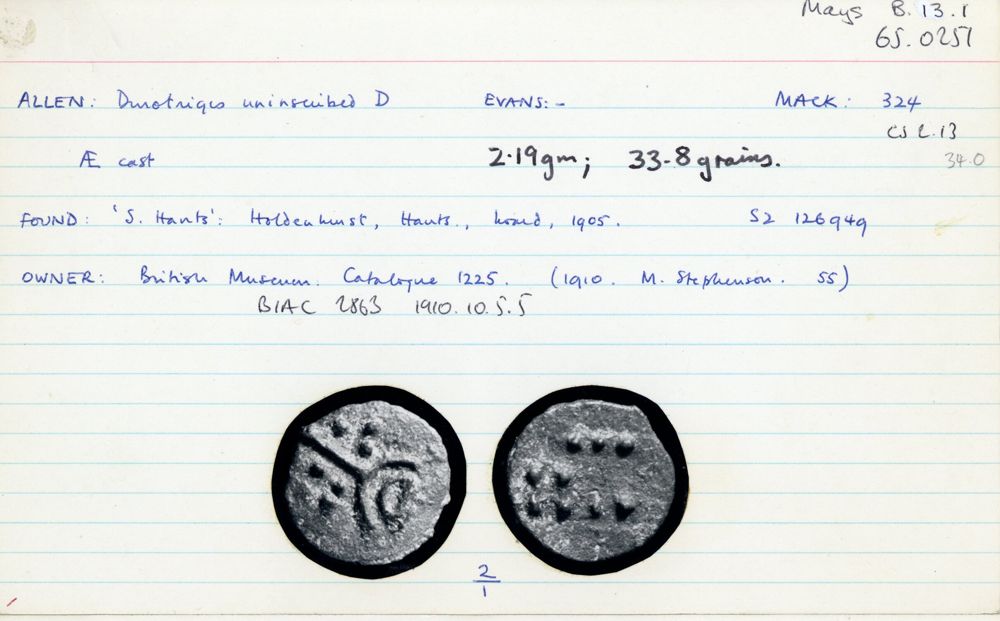 Mays B.13.1
65.0251
ALLEN: Durotriges uninscribed D EVANS: - MACK: 324
CS L.13
Æ cast 2.19gm; 33.8grains. 34.0
FOUND: 'S. Hants': Holdenhurst, Hants., hoard, 1905. SZ 126949
OWNER: British Museum. Catalogue 1225. (1910. M. Stephenson. 55)
BIAC 2863 1910.10.5.5
2
1